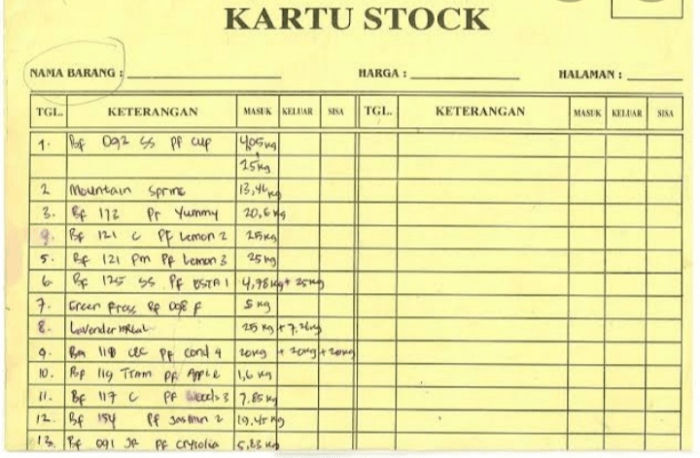 KARTU STOCK
NAMA BARANG : HARGA : HALAMAN :
TGL. KETERANGAN MASUK KELUAR SISA TGL. KETERANGAN MASUK KELUAR SISA
1. Bf 092 SS PF cup 4,05 kg
25 kg
2 Mountain Spring 13,46 kg
3. Bf 172 Pr Yummy 20,6 kg
Bf 121 C PF Lemon 2 25 kg
5. Bf 121 Pm PF Lemon 3 25 kg
6 Bf 125 SS PF 4,98 kg + 25 kg
7. Green Bf 098 F 5 kg
8. Lavender 25 kg + 7.2 kg
9. 118 PF cond 4 20 kg + 20 kg + 20 kg
10. 119 PF Apple 1,6 kg
11. Bf 117 C PF 3 7.85 kg
12. Bf 154 PF Jasmin 2 19.45 kg
13. 091 PF 5,83 kg